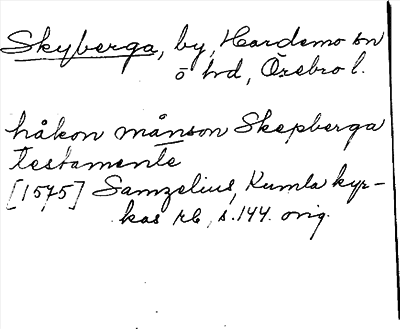 Skyberga, by, Hardemo sn
ö hd, Örebro l.
håkon månson Skepberga
testamente
[1575] Samzelius, Kumla kyr-
kas rb, s. 144. orig.